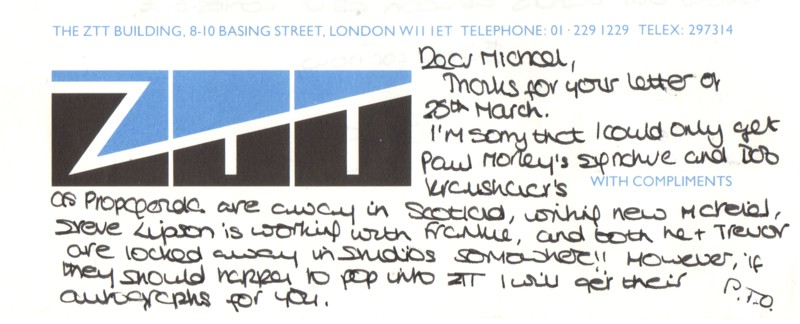 THE ZTT BUILDING, 8-10 BASING STREET, LONDON W11 1ET TELEPHONE: 01·229 1229 TELEX: 297314
ZTT
Dear Michael,
Thanks for your letter of
25th March.
I'm sorry that I could only get
Paul Morley's signature and Bob
Kraushaar's
WITH COMPLIMENTS
as Propaganda are away in Scotland, writing new material,
Steve Lipson is working with Frankie, and both he + Trevor
are locked away in studios somewhere!! However, if
they should happen to pop into ZTT I will get their
autographs for you.
P.T.O.